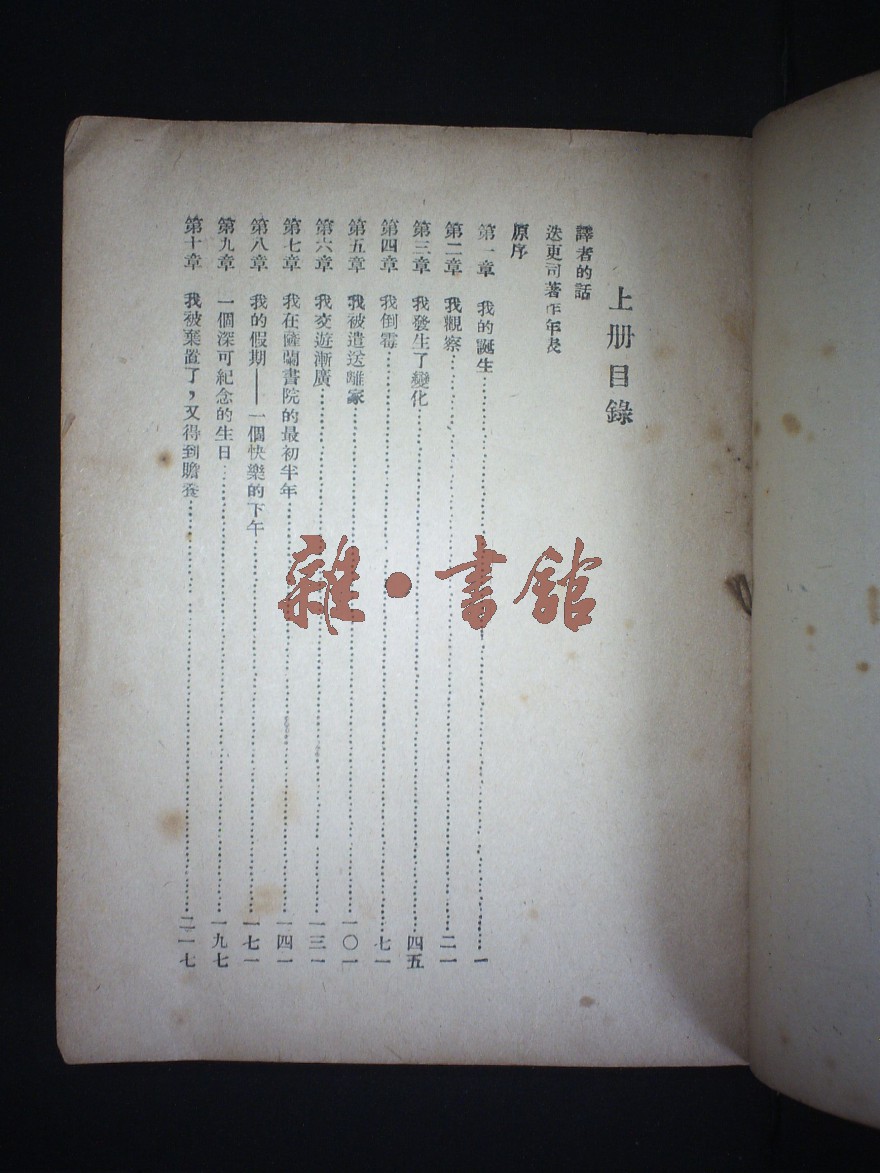 上册目錄
譯者的話
迭更司著作年表
原序
第一章 我的誕生……一
第二章 我觀察……二一
第三章 我發生了變化……四五
第四章 我倒霉……七一
第五章 我被遣送離家……一〇一
第六章 我交遊漸廣……一三一
第七章 我在薩蘭書院的最初半年……一四一
第八章 我的假期——一個快樂的下午……一七一
第九章 一個深可紀念的生日……一九七
第十章 我被棄置了，又得到贍養……二一七
雜·書舘